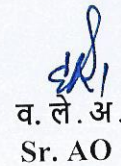 व. ले. अ.
Sr. AO